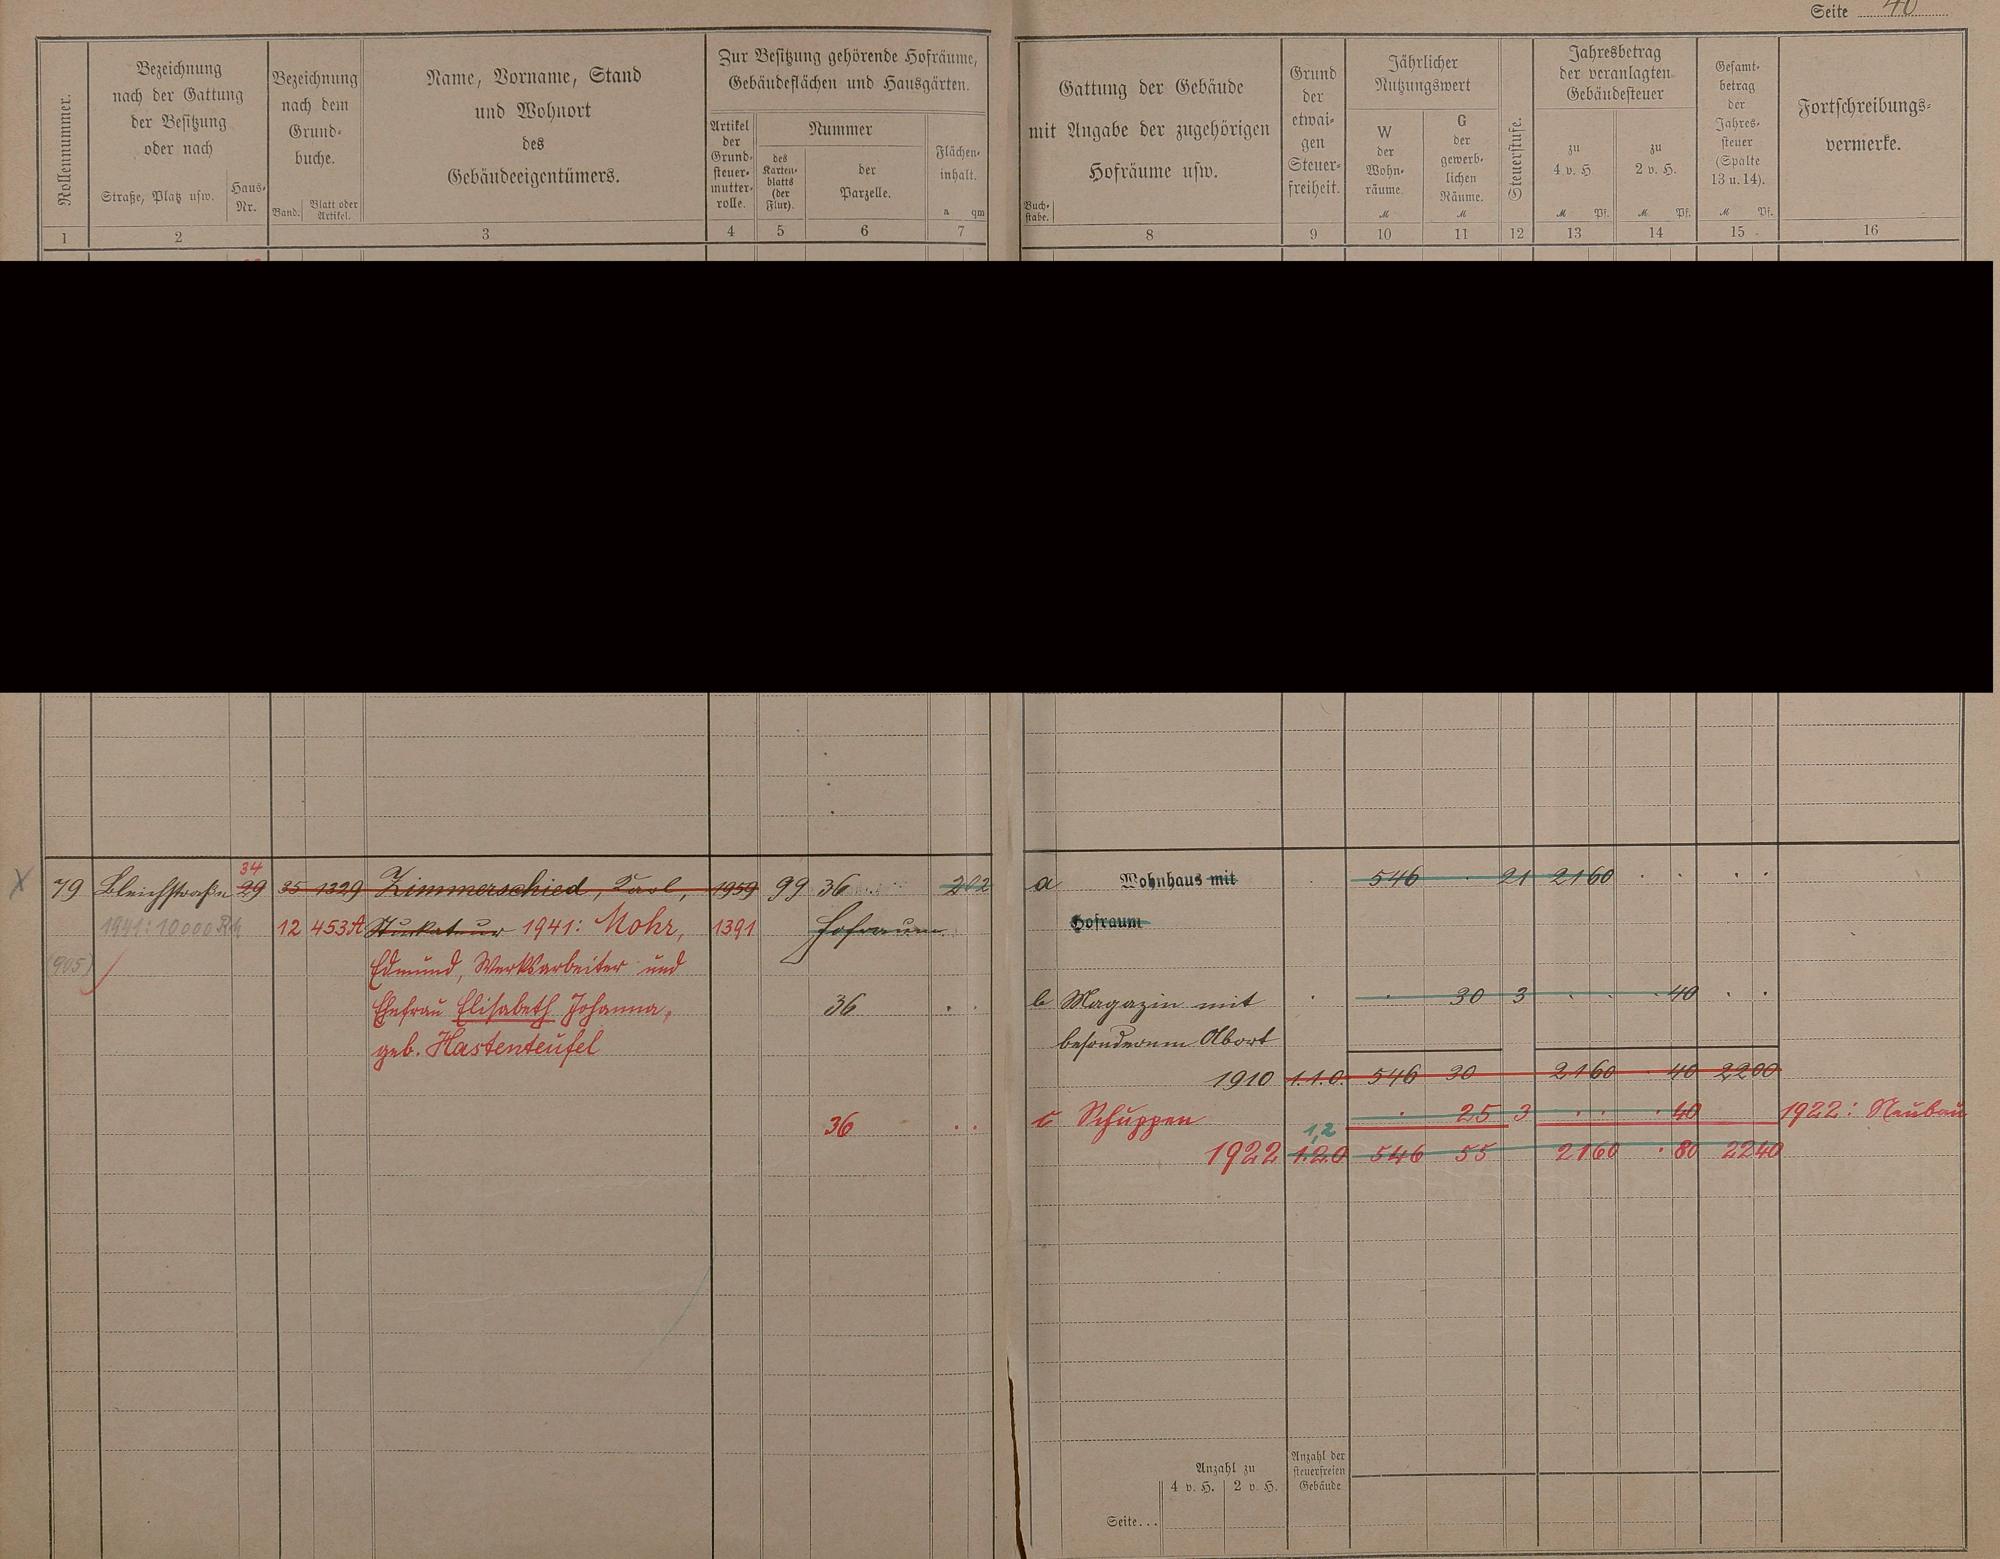 Seite 40
Rollennummer.
Bezeichnung
nach der Gattung
der Besitzung
oder nach
Straße, Platz usw.
Haus-
Nr.
Bezeichnung
nach dem
Grund-
buche.
Band.
Blatt oder
Artikel.
Name, Vorname, Stand
und Wohnort
des
Gebäudeeigentümers.
Zur Besitzung gehörende Hofräume,
Gebäudeflächen und Hausgärten.
Artikel
der
Grund-
steuer-
mutter-
rolle.
Nummer
des
Karten-
blatts
(der
Flur).
der
Parzelle.
Flächen-
inhalt.
a qm
Gattung der Gebäude
mit Angabe der zugehörigen
Hofräume usw.
Buch-
stabe.
Grund
der
etwai-
gen
Steuer-
freiheit.
Jährlicher
Nutzungswert
W
der
Wohn-
räume.
M
G
der
gewerb-
lichen
Räume.
M
Steuerstufe.
Jahresbetrag
der veranlagten
Gebäudesteuer
zu
4 v. H.
M Pf.
zu
2 v. H.
M Pf.
Gesamt-
betrag
der
Jahres-
steuer
(Spalte
13 u. 14).
M Pf.
Fortschreibungs-
vermerke.
1 2 3 4 5 6 7 8 9 10 11 12 13 14 15 16
34
79 Bleichstraße 29 35 1329 Zimmerschied, Karl, 1959 99 36 202 a Wohnhaus mit 546 21 2160
1941: 10000 RM 12 453A Stukateur 1941: Mohr, 1391 Hofraum Hofraum
(905) Edmund, Werksarbeiter und
Ehefrau Elisabeth Johanna, 36 b Magazin mit 30 3 40
geb. Hastenteufel besonderem Abort
1910 1.1.0. 546 30 2160 40 2200
36 c Schuppen 25 3 40 1922: Neubau
1,2
1922 1.2.0 546 55 2160 80 2240
Anzahl zu
4 v. H. 2 v. H.
Anzahl der
steuerfreien
Gebäude
Seite...